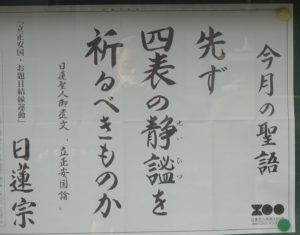 今月の聖語
先ず
四表の静謐を
せいひつ
祈るべきものか
日蓮聖人御遺文『立正安国論』
「立正安国・お題目結縁運動」
日蓮宗